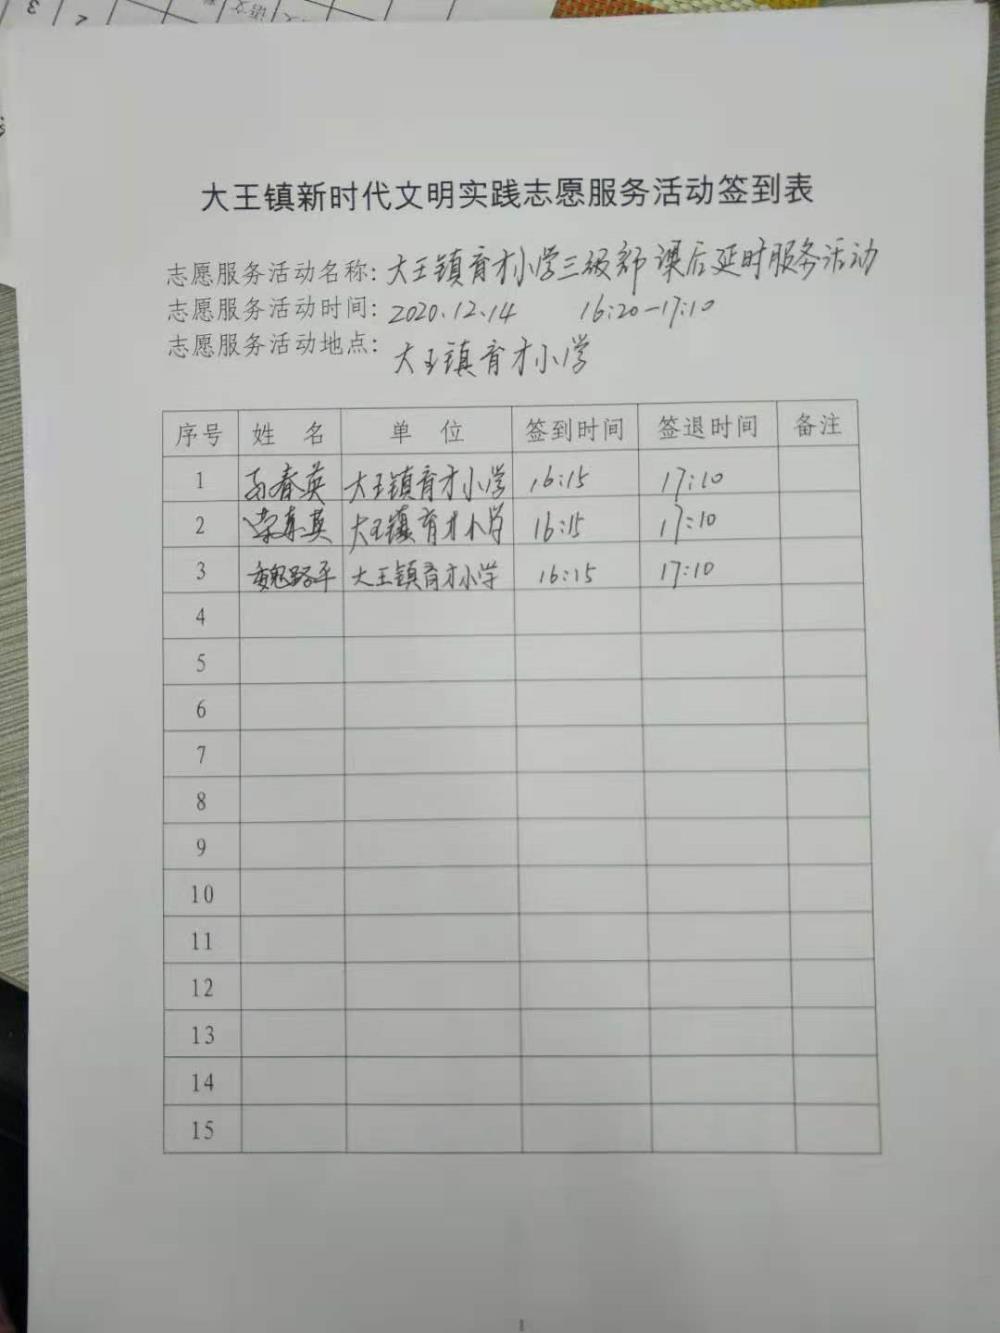 大王镇新时代文明实践志愿服务活动签到表
志愿服务活动名称：大王镇育才小学三级部课后延时服务活动
志愿服务活动时间：2020.12.14 16:20-17:10
志愿服务活动地点：大王镇育才小学
序号 姓 名 单 位 签到时间 签退时间 备注
1 春英 大王镇育才小学 16:15 17:10
2 英 大王镇育才小学 16:15 17:10
3 魏路平 大王镇育才小学 16:15 17:10
4
5
6
7
8
9
10
11
12
13
14
15
1